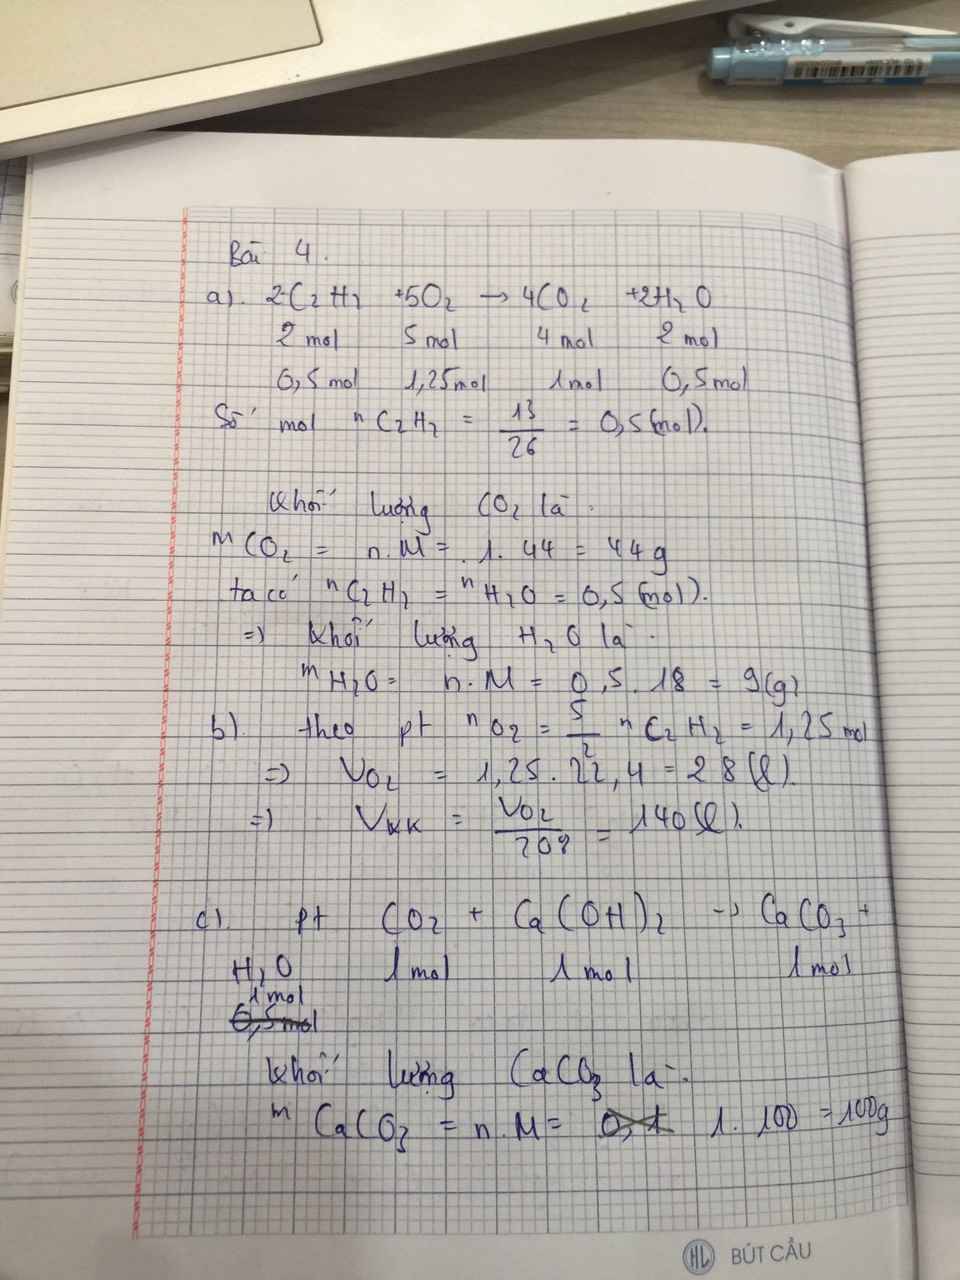 Bài 4.
a). 2C2H2 +5O2 → 4CO2 +2H2O
2 mol 5 mol 4 mol 2 mol
0,5mol 1,25mol 1mol 0,5mol
Số mol nC2H2 = 13/26 = 0,5(mol).
Khối lượng CO2 là.
mCO2 = n.M = 1. 44 = 44g
ta có nC2H2 = nH2O = 0,5(mol).
=) Khối lượng H2O là.
mH2O = n.M = 0,5. 18 = 9(g)
b). theo pt nO2 = 5/2 nC2H2 = 1,25mol
=> VO2 = 1,25. 22,4 = 28(l).
=) VKK = VO2/20% = 140(l).
c). pt CO2 + Ca(OH)2 → CaCO3 +
H2O 1mol 1mol 1mol
1mol
0,5mol
Khối lượng CaCO3 là.
mCaCO3 = n.M = 0,1 1. 100 = 100g
HL BÚT CẦU